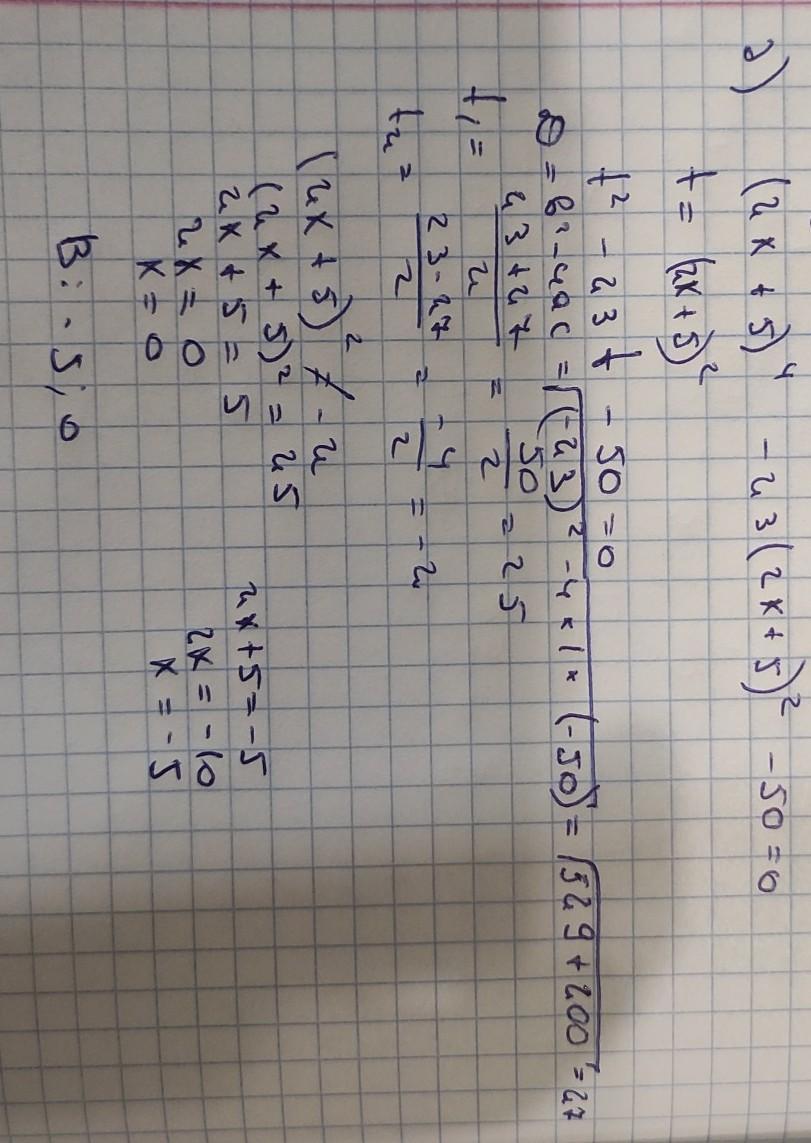 2) (2x + 5)⁴ - 23(2x + 5)² - 50 = 0
t = (2x + 5)²
t² - 23t - 50 = 0
D = b² - 4ac = √(-23)² - 4 × 1 × (-50) = √529 + 200 = 27
t₁ = (23 + 27)/2 = 50/2 = 25
t₂ = (23 - 27)/2 = -4/2 = -2
(2x + 5)² ≠ -2
(2x + 5)² = 25
2x + 5 = 5    2x + 5 = -5
2x = 0    2x = -10
x = 0    x = -5
В: -5; 0